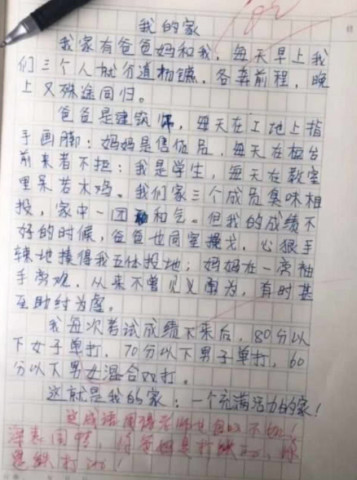 我的家
我家有爸爸妈和我，每天早上我
们三个人就分道扬镳，各奔前程，晚
上又殊途同归。
爸爸是建筑师，每天在工地上指
手画脚；妈妈是售货员，每天在柜台
前来者不拒；我是学生，每天在教室
里呆若木鸡。我们家三个成员臭味相
投，家中一团和气。但我的成绩不
好的时候，爸爸也同室操戈，心狠手
辣地揍得我五体投地；妈妈在一旁袖
手旁观，从来不曾见义勇为，有时甚
至助纣为虐。
我每次考试成绩下来后，80分以
下女子单打，70分以下男子单打，60
分以下男女混合双打。
这就是我的家：一个充满活力的家！
这成语用得
深表同情，